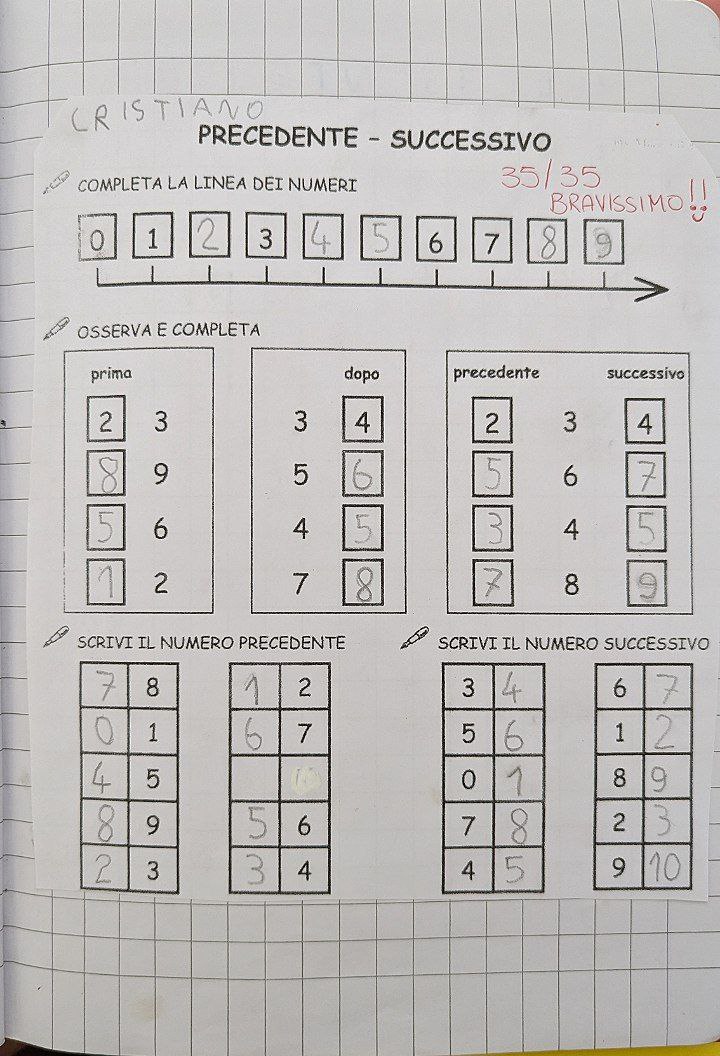 CRISTIANO
PRECEDENTE - SUCCESSIVO
COMPLETA LA LINEA DEI NUMERI
35/35
BRAVISSIMO!!
0 1 2 3 4 5 6 7 8 9
OSSERVA E COMPLETA
prima
2 3
8 9
5 6
1 2
dopo
3 4
5 6
4 5
7 8
precedente successivo
2 3 4
5 6 7
3 4 5
7 8 9
SCRIVI IL NUMERO PRECEDENTE
7 8
0 1
4 5
8 9
2 3
1 2
6 7
5 6
3 4
SCRIVI IL NUMERO SUCCESSIVO
3 4
5 6
0 1
7 8
4 5
6 7
1 2
8 9
2 3
9 10